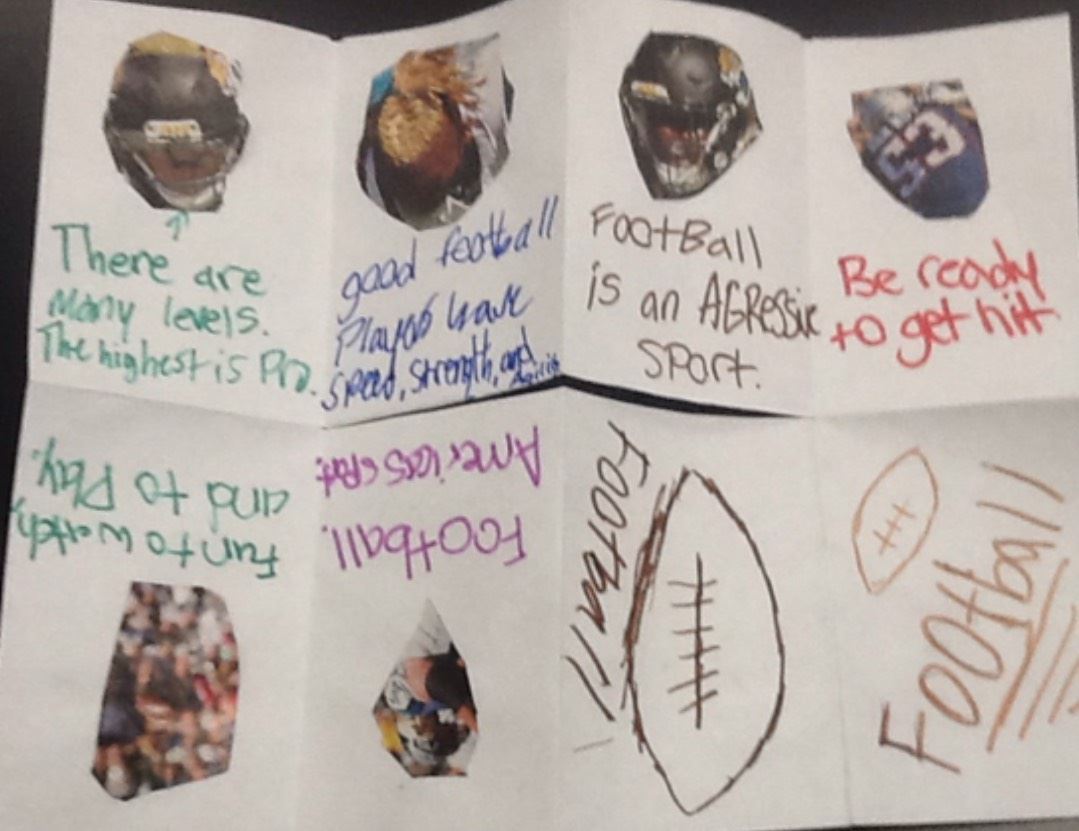 There are
Many levels.
The highest is Pro.
good football
Players have
Speed, Strength, and Agility
FootBall
is an AGRessive
SPort.
Be ready
to get hit
Fun to watch,
and to Play.
Football.
Americas sport.
Football
Football